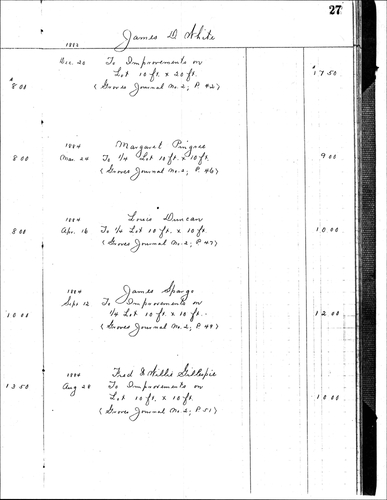 27
James D. White
1883
Dec. 20 To Improvements on
Lot 10 ft. x 20 ft. $17 50
$8 00 (Graves Journal No. 2, P. 42)
1884 Margaret Pingree
8 00 Mar. 24 To 1/4 Lot 10 ft. x 10 ft. 9 00
(Graves Journal No. 2, P. 46)
1884 Louis Duncan
8 00 Apr. 16 To 1/4 Lot 10 ft. x 10 ft. 10 00
(Graves Journal No. 2, P. 47)
1884 James Spargo
Sept 12 To Improvements on
10 00 1/4 Lot 10 ft. x 10 ft. 12 00
(Graves Journal No. 2, P. 49)
1884 Fred & Willis Gillespie
13 50 Aug 28 To Improvements on
Lot 10 ft. x 10 ft. 10 00
(Graves Journal No. 2, P. 51)